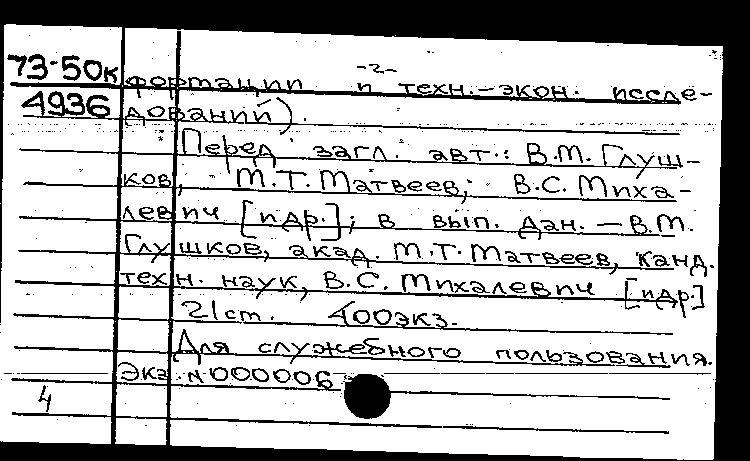 -2-
73-50к формации и техн.-экон. иссле-
4936 дований).
Перед загл. авт.: В.М. Глуш-
ков, М.Т. Матвеев, В.С. Миха-
левич [и др.]; в вып. дан. — В.М.
Глушков, акад. М.Т. Матвеев, канд.
техн. наук, В.С. Михалевич [и др.]
21 cm. 400 экз.
Для служебного пользования.
Экз. N 000006
4